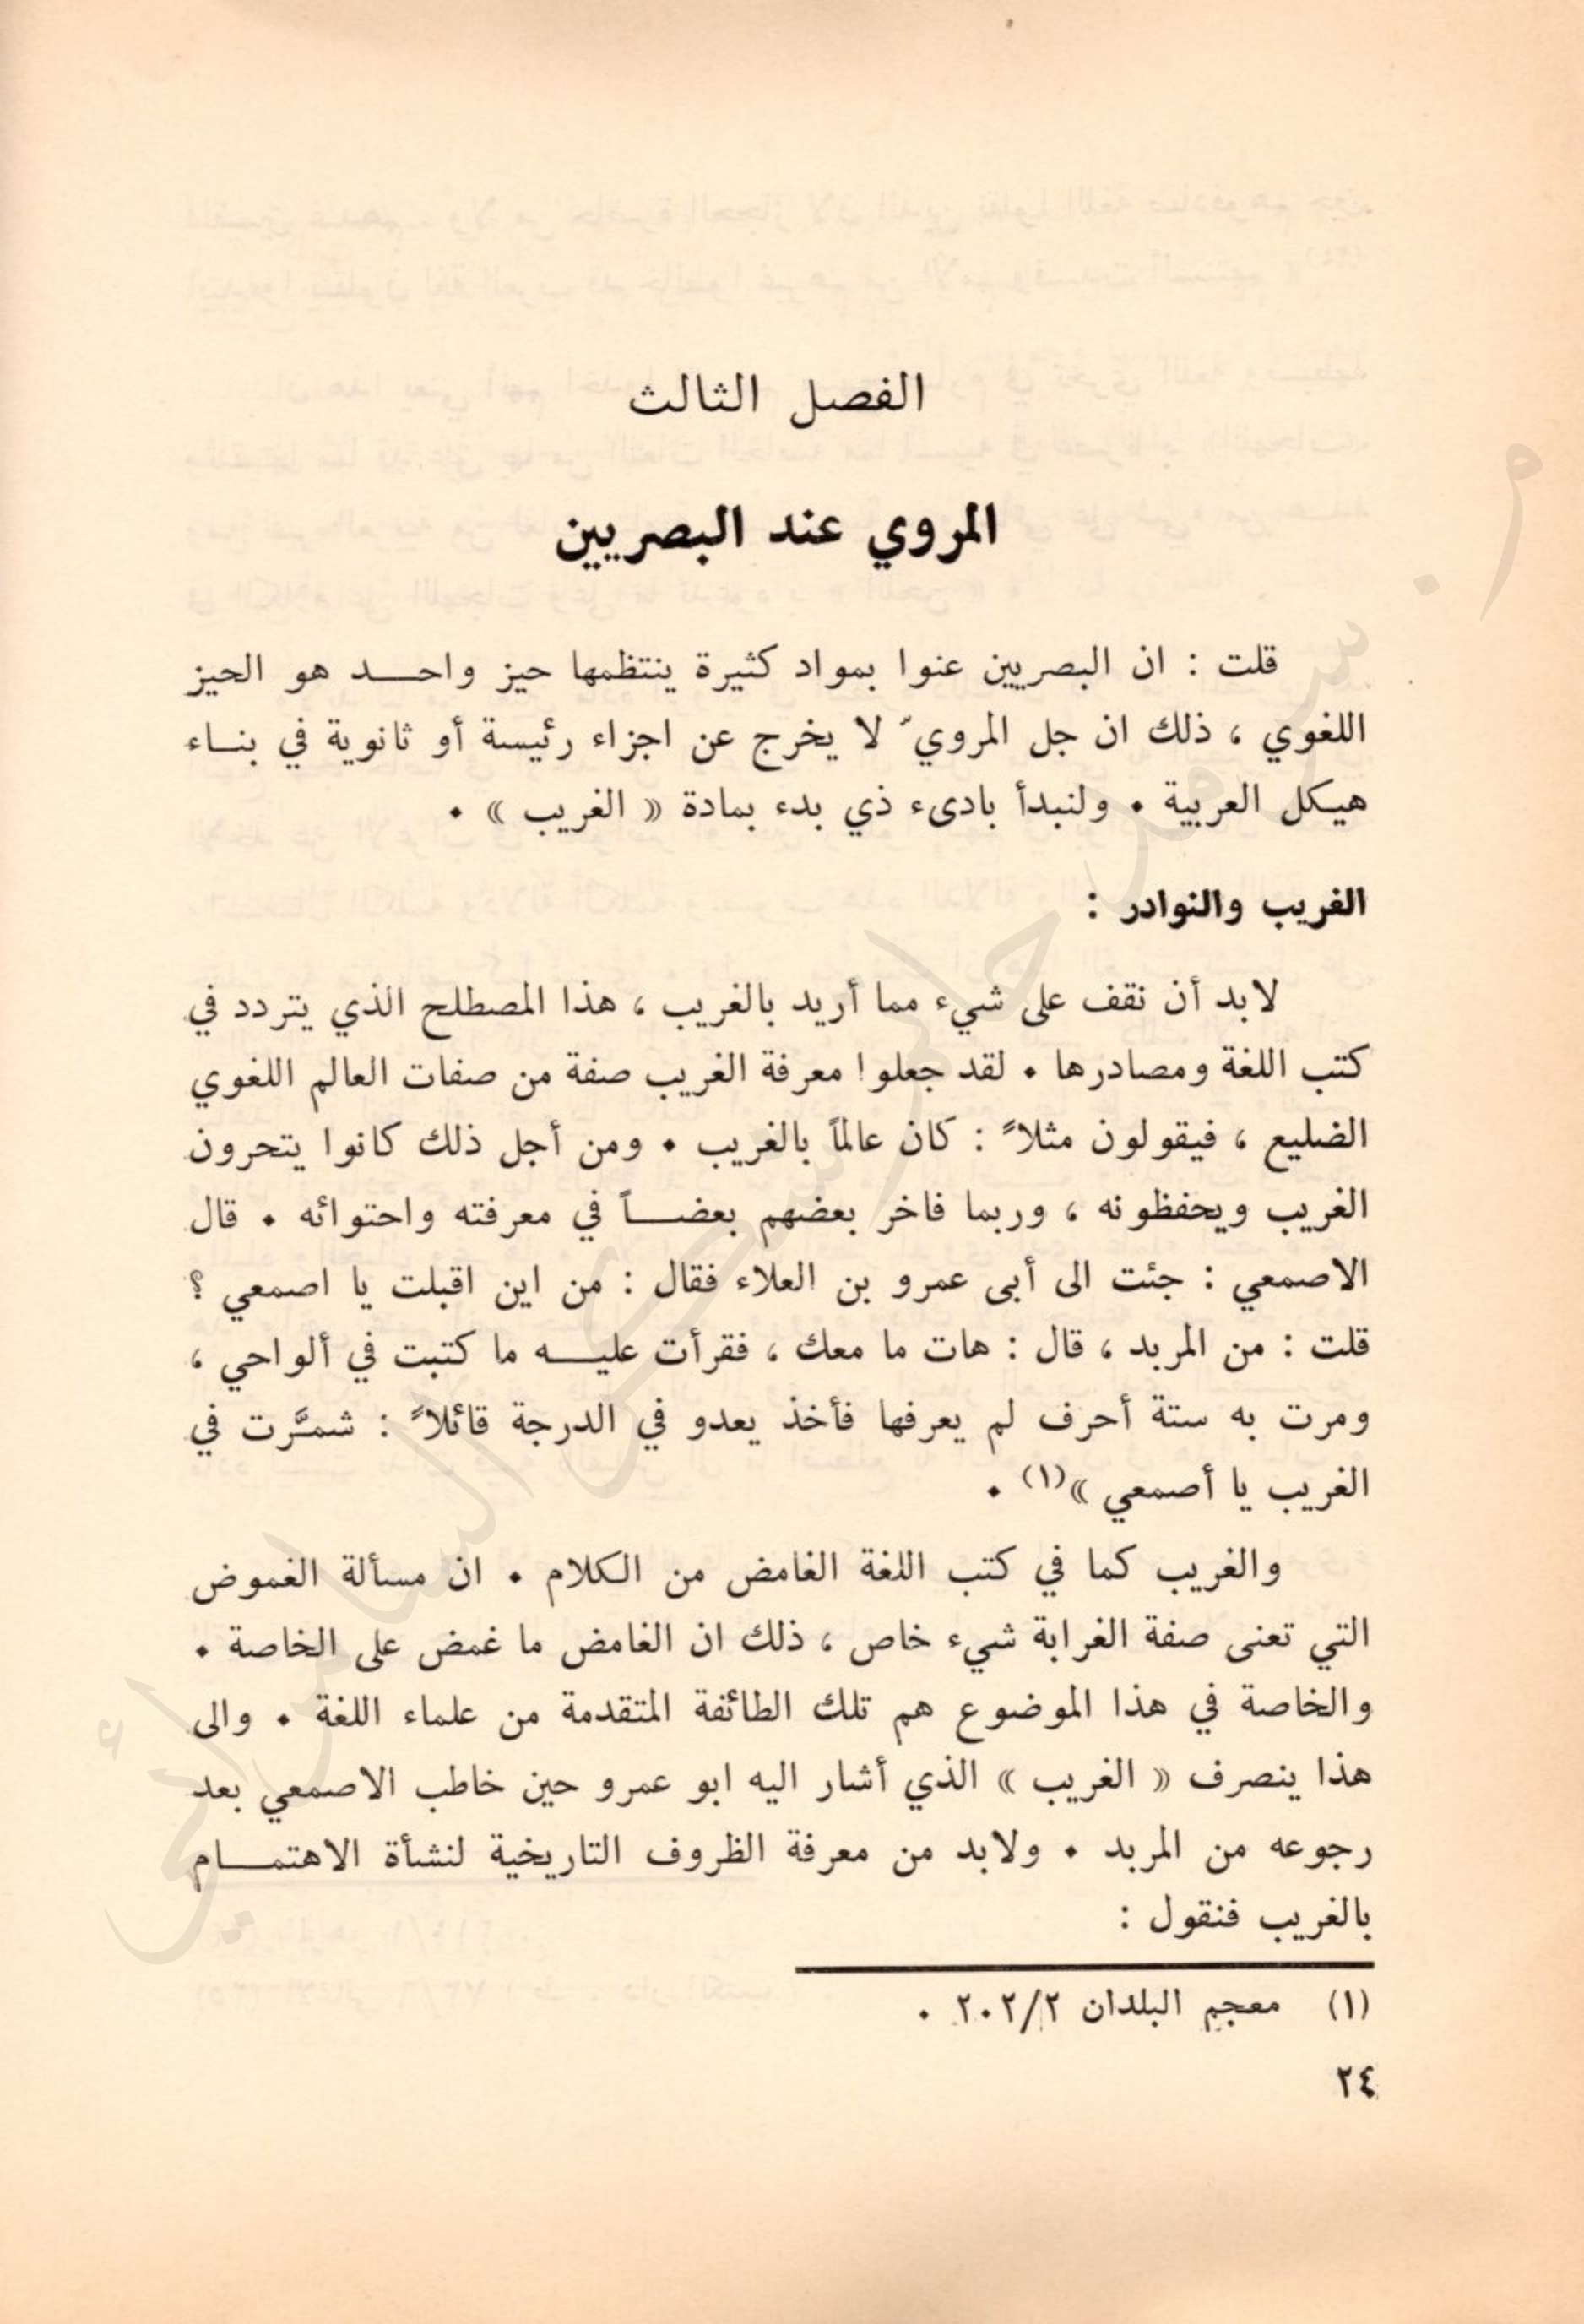 الفصل الثالث
المروي عند البصريين
قلت : ان البصريين عنوا بمواد كثيرة ينتظمها حيز واحد هو الحيز
اللغوي ، ذلك ان جل المرويّ لا يخرج عن اجزاء رئيسة أو ثانوية في بناء
هيكل العربية . ولنبدأ بادىء ذي بدء بمادة « الغريب » .
الغريب والنوادر :
لابد أن نقف على شيء مما أريد بالغريب ، هذا المصطلح الذي يتردد في
كتب اللغة ومصادرها . لقد جعلوا معرفة الغريب صفة من صفات العالم اللغوي
الضليع ، فيقولون مثلاً : كان عالماً بالغريب . ومن أجل ذلك كانوا يتحرون
الغريب ويحفظونه ، وربما فاخر بعضهم بعضاً في معرفته واحتوائه . قال
الاصمعي : جئت الى أبى عمرو بن العلاء فقال : من اين اقبلت يا اصمعي ؟
قلت : من المربد ، قال : هات ما معك ، فقرأت عليه ما كتبت في ألواحي ،
ومرت به ستة أحرف لم يعرفها فأخذ يعدو في الدرجة قائلاً : شمَّرت في
الغريب يا أصمعي »(١) .
والغريب كما في كتب اللغة الغامض من الكلام . ان مسألة الغموض
التي تعنى صفة الغرابة شيء خاص ، ذلك ان الغامض ما غمض على الخاصة .
والخاصة في هذا الموضوع هم تلك الطائفة المتقدمة من علماء اللغة . والى
هذا ينصرف « الغريب » الذي أشار اليه ابو عمرو حين خاطب الاصمعي بعد
رجوعه من المربد . ولابد من معرفة الظروف التاريخية لنشأة الاهتمام
بالغريب فنقول :
(١) معجم البلدان ٢٠٢/٢ .
٢٤